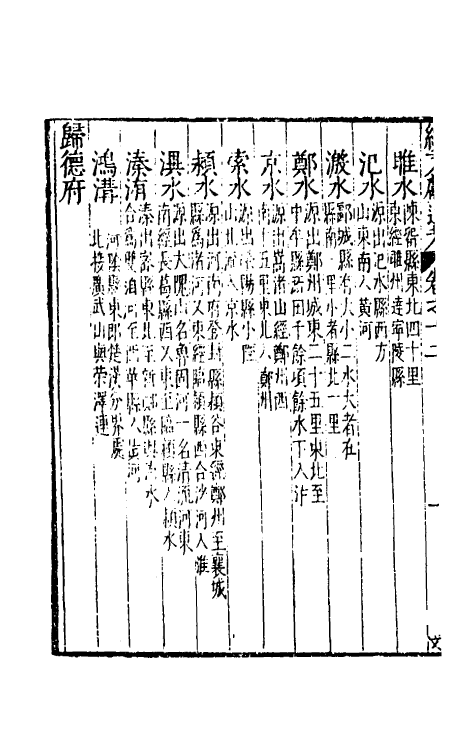 睢水 陳留縣東北四十里
京經睢州達寧陵縣
汜水 源出汜水縣西方
山東南入黄河
溵水 郾城縣有大小二水大者在
縣南一里小者縣北一里
鄭水 源出鄭州城東二十五里東北至
中牟縣西田千餘項餘水下入汴
京水 源出嵩渚山經鄭州西
南十五里東北入鄭州
索水 源出滎陽縣小陘
山北流入京水
潁水 源出河南府登封縣潁谷東經鄭州至襄城
縣為渚河又東經臨潁縣西合沙河入淮
潩水 源出大隗山名魯固河一名清流河東
南經長葛縣西又東至臨潁縣入潁水
溱洧 溱出密縣東北至新鄭縣與洧水
合為雙洎河至西華縣入黄河
鴻溝 河陰縣東即楚漢分界處
北接廣武山與滎澤連
歸德府
卷之十二
一